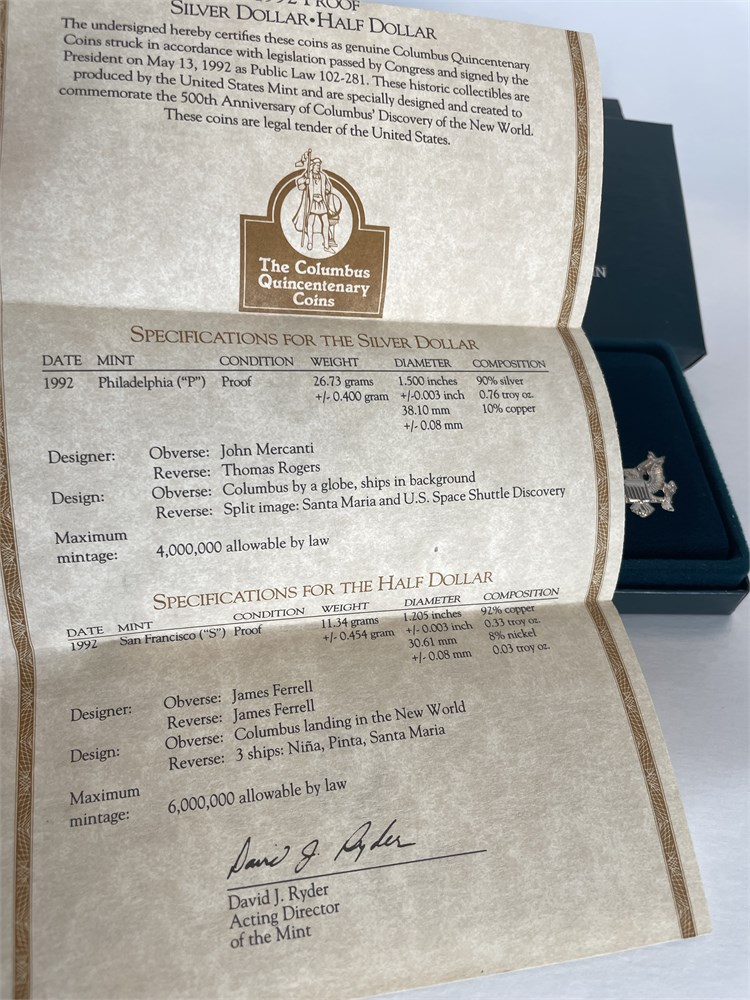 1992 PROOF
SILVER DOLLAR•HALF DOLLAR
The undersigned hereby certifies these coins as genuine Columbus Quincentenary
Coins struck in accordance with legislation passed by Congress and signed by the
President on May 13, 1992 as Public Law 102-281. These historic collectibles are
produced by the United States Mint and are specially designed and created to
commemorate the 500th Anniversary of Columbus' Discovery of the New World.
These coins are legal tender of the United States.
The Columbus
Quincentenary
Coins
SPECIFICATIONS FOR THE SILVER DOLLAR
DATE MINT CONDITION WEIGHT DIAMETER COMPOSITION
1992 Philadelphia ("P") Proof 26.73 grams 1.500 inches 90% silver
+/- 0.400 gram +/-0.003 inch 0.76 troy oz.
38.10 mm 10% copper
+/- 0.08 mm
Designer: Obverse: John Mercanti
Reverse: Thomas Rogers
Design: Obverse: Columbus by a globe, ships in background
Reverse: Split image: Santa Maria and U.S. Space Shuttle Discovery
Maximum
mintage: 4,000,000 allowable by law
SPECIFICATIONS FOR THE HALF DOLLAR
DATE MINT CONDITION WEIGHT DIAMETER COMPOSITION
1992 San Francisco ("S") Proof 11.34 grams 1.205 inches 92% copper
+/- 0.454 gram +/- 0.003 inch 0.33 troy oz.
30.61 mm 8% nickel
+/- 0.08 mm 0.03 troy oz.
Designer: Obverse: James Ferrell
Reverse: James Ferrell
Design: Obverse: Columbus landing in the New World
Reverse: 3 ships: Niña, Pinta, Santa Maria
Maximum
mintage: 6,000,000 allowable by law
David J. Ryder
David J. Ryder
Acting Director
of the Mint